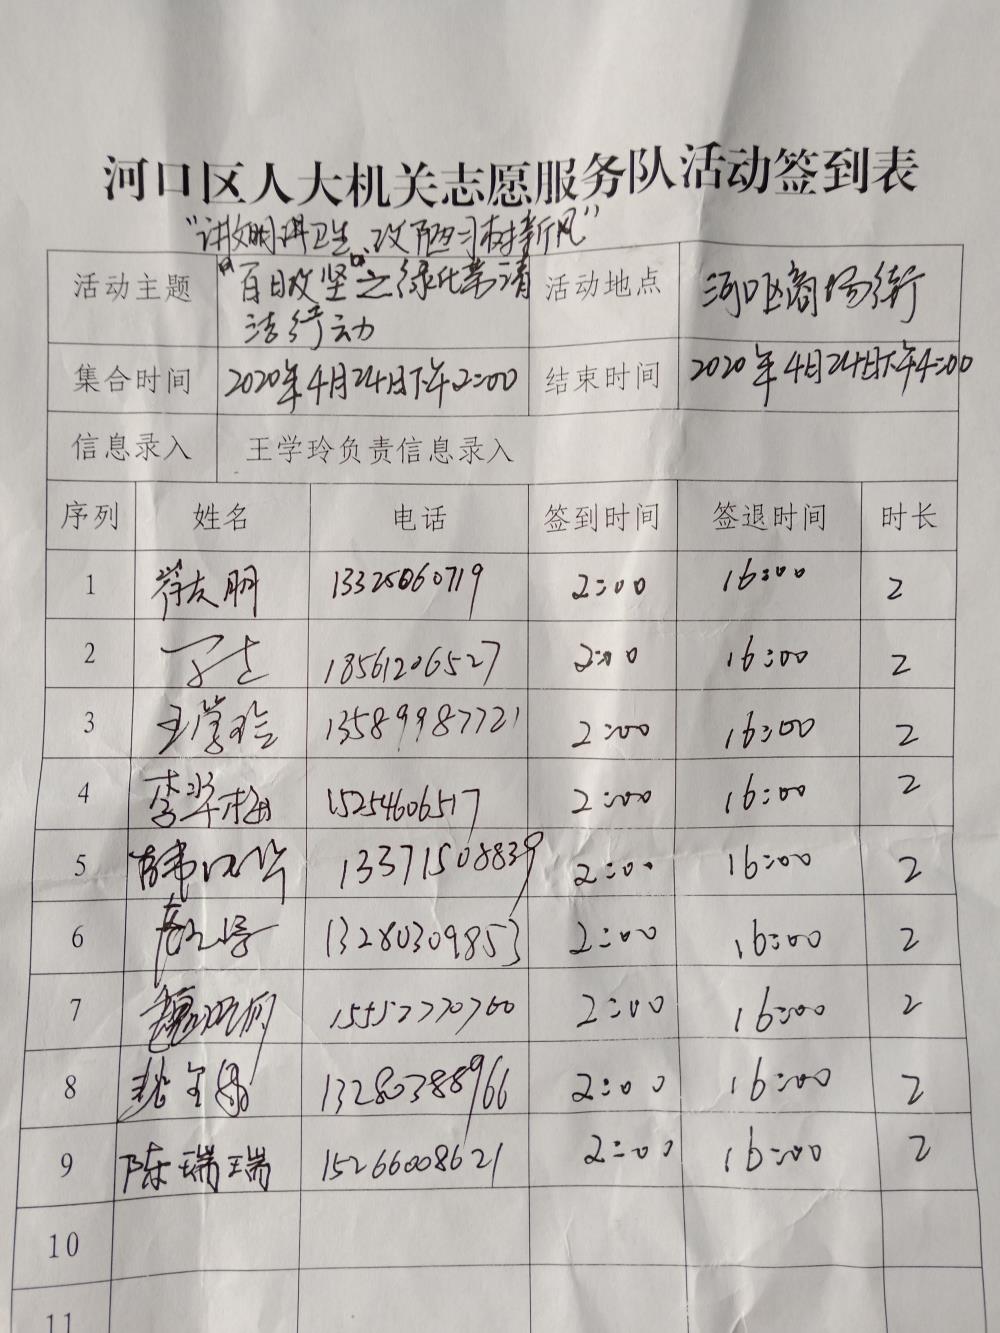 河口区人大机关志愿服务队活动签到表
"讲文明讲卫生、改陋习树新风"
活动主题 "百日攻坚"之绿化带清 活动地点 河口区商场街
洁行动
集合时间 2020年4月24日下午2:00 结束时间 2020年4月24日下午4:00
信息录入 王学玲负责信息录入
序列 姓名 电话 签到时间 签退时间 时长
1 13325060719 2:00 16:00 2
2 18561206527 2:00 16:00 2
3 王学玲 13589987721 2:00 16:00 2
4 李翠梅 15254606517 2:00 16:00 2
5 13371508839 2:00 16:00 2
6 13280309853 2:00 16:00 2
7 15552770760 2:00 16:00 2
8 13280388966 2:00 16:00 2
9 陈瑞瑞 15266008621 2:00 16:00 2
10
11